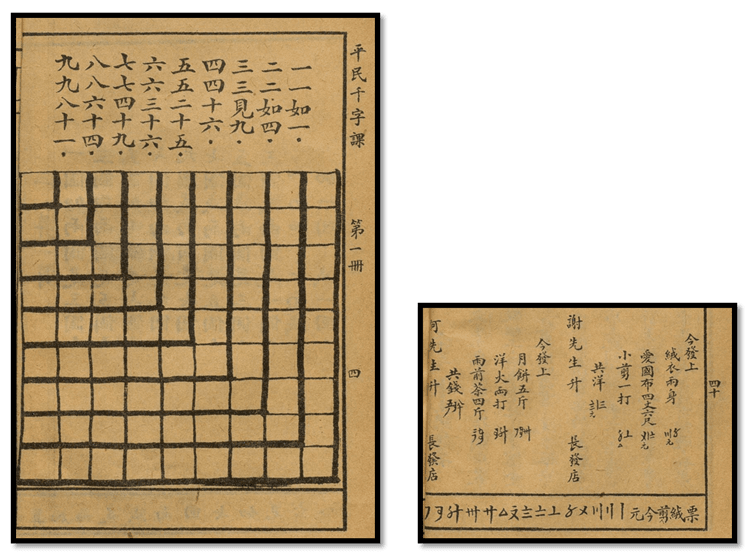 平民千字課 第一冊 四
一一如一.
二二如四.
三三見九.
四四十六.
五五二十五.
六六三十六.
七七四十九.
八八六十四.
九九八十一.
四十
今發上
絨衣兩身
愛國布四丈六尺
小剪一打
共洋
謝先生升 長發店
今發上
月餅五斤
洋火兩打
雨前茶四斤
共錢
先生升 長發店
票絨剪今元〡〢〣〤